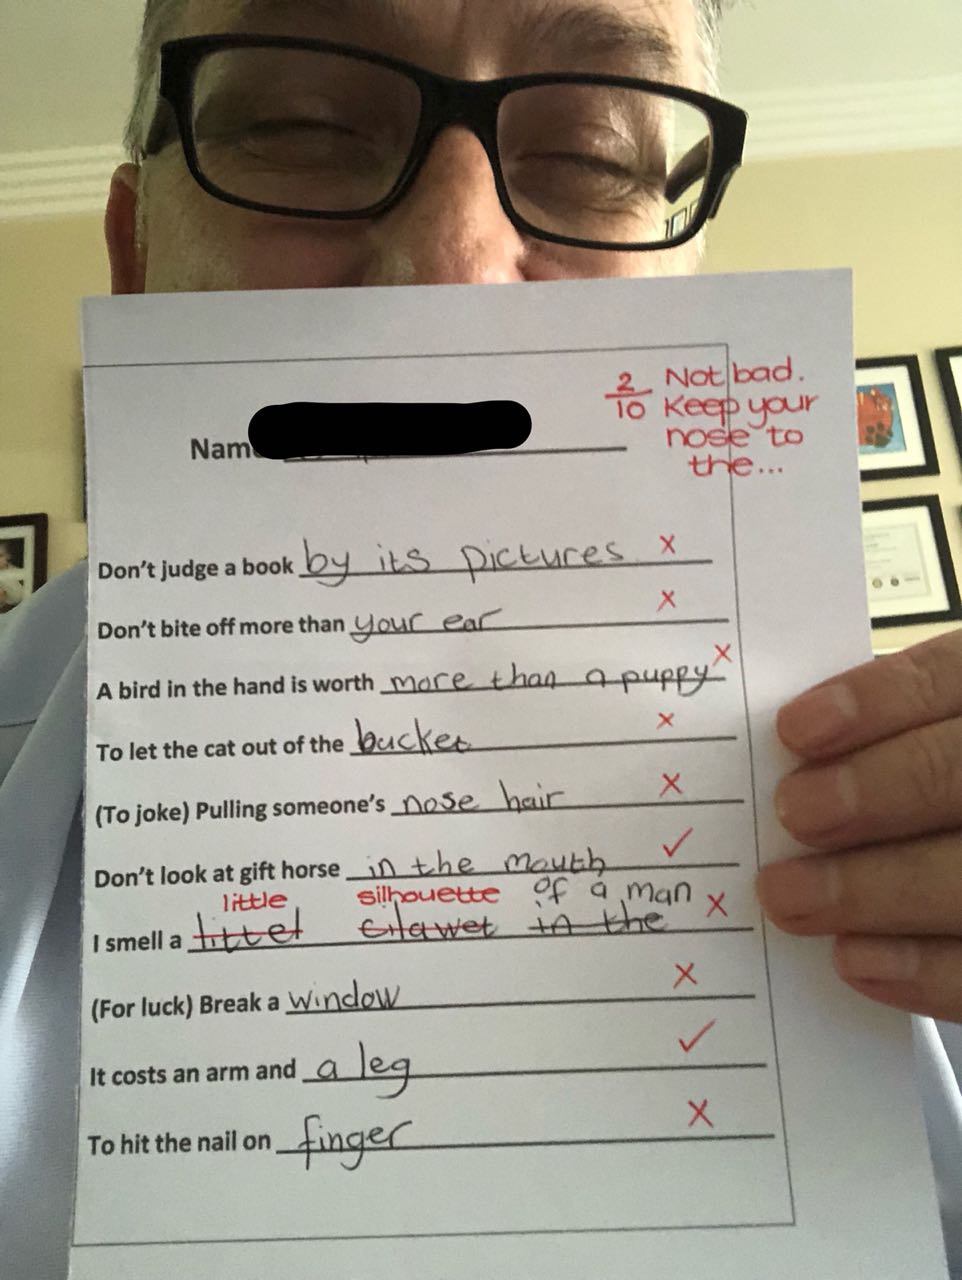 2/10 Not bad.
Keep your
nose to
the...
Name
Don't judge a book by its pictures x
Don't bite off more than your ear x
A bird in the hand is worth more than a puppy x
To let the cat out of the bucket x
(To joke) Pulling someone's nose hair x
Don't look at gift horse in the mouth ✓
little silhouette of a man x
I smell a littel cilawet in the
(For luck) Break a window x
It costs an arm and a leg ✓
To hit the nail on finger x